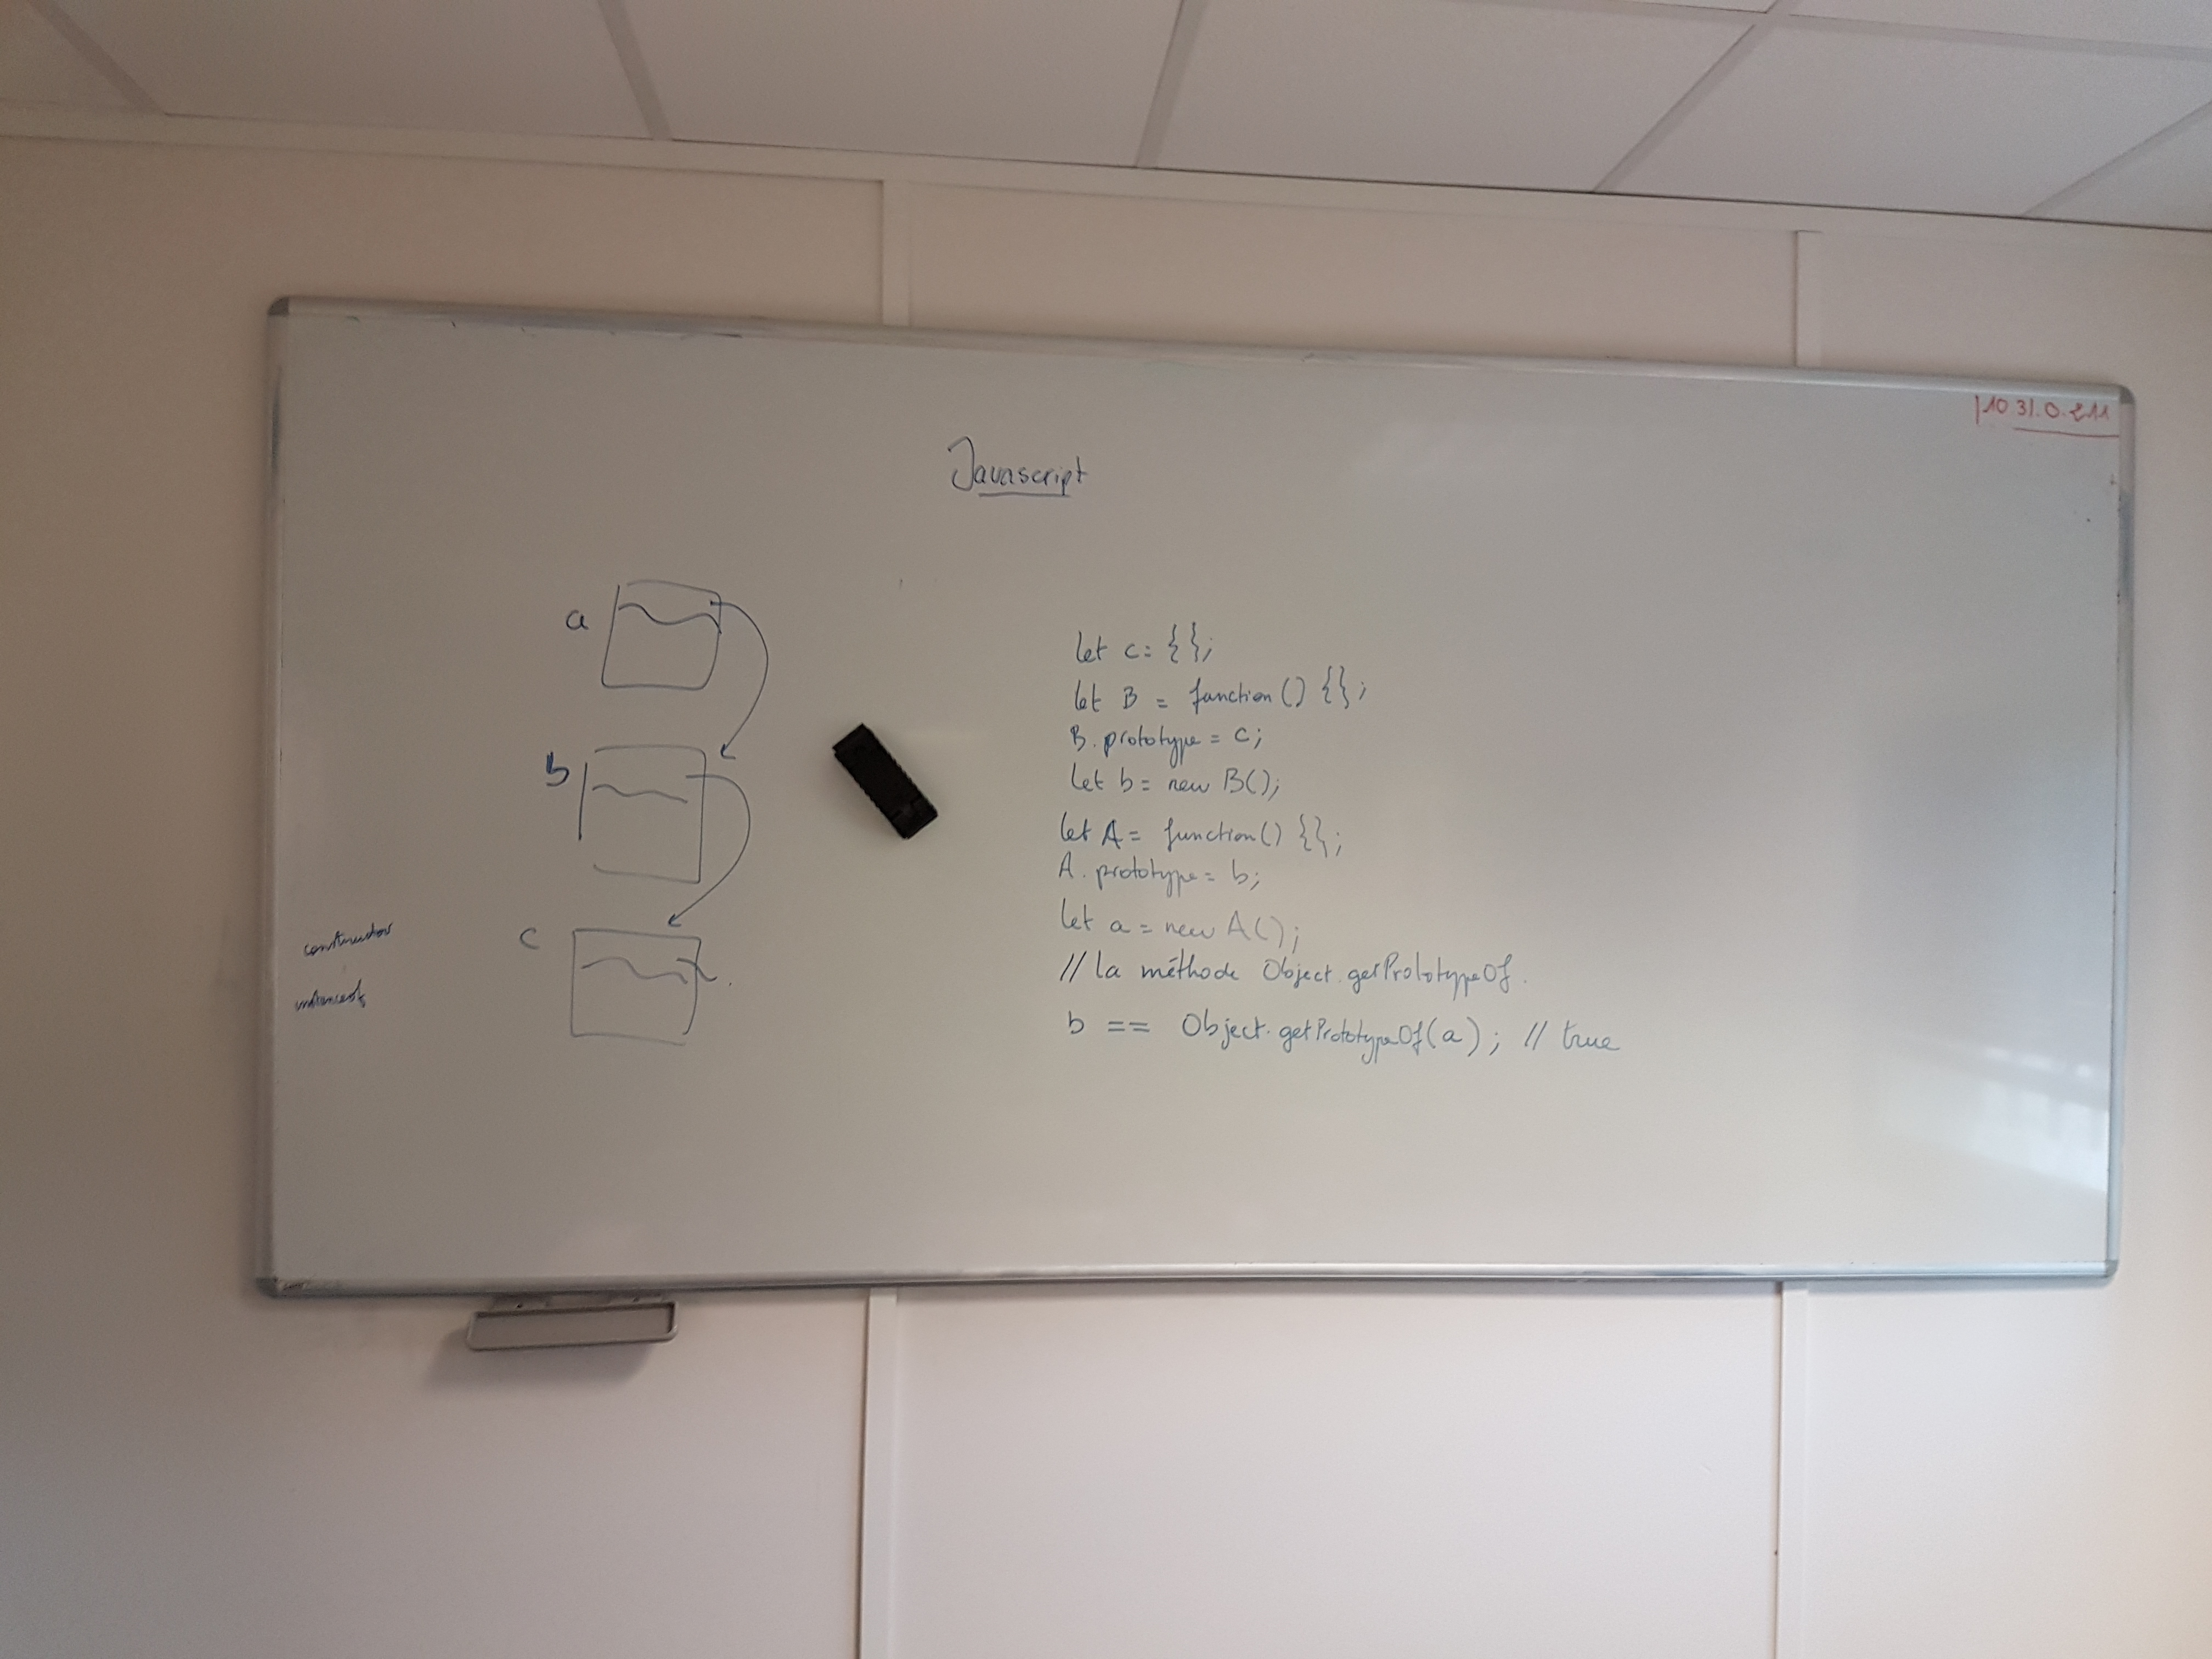 10.31.0.211
Javascript
a
b
c
constructor
instanceof
let c = {};
let B = function() {};
B.prototype = c;
let b = new B();
let A = function() {};
A.prototype = b;
let a = new A();
// la méthode Object.getPrototypeOf.
b == Object.getPrototypeOf(a); // true